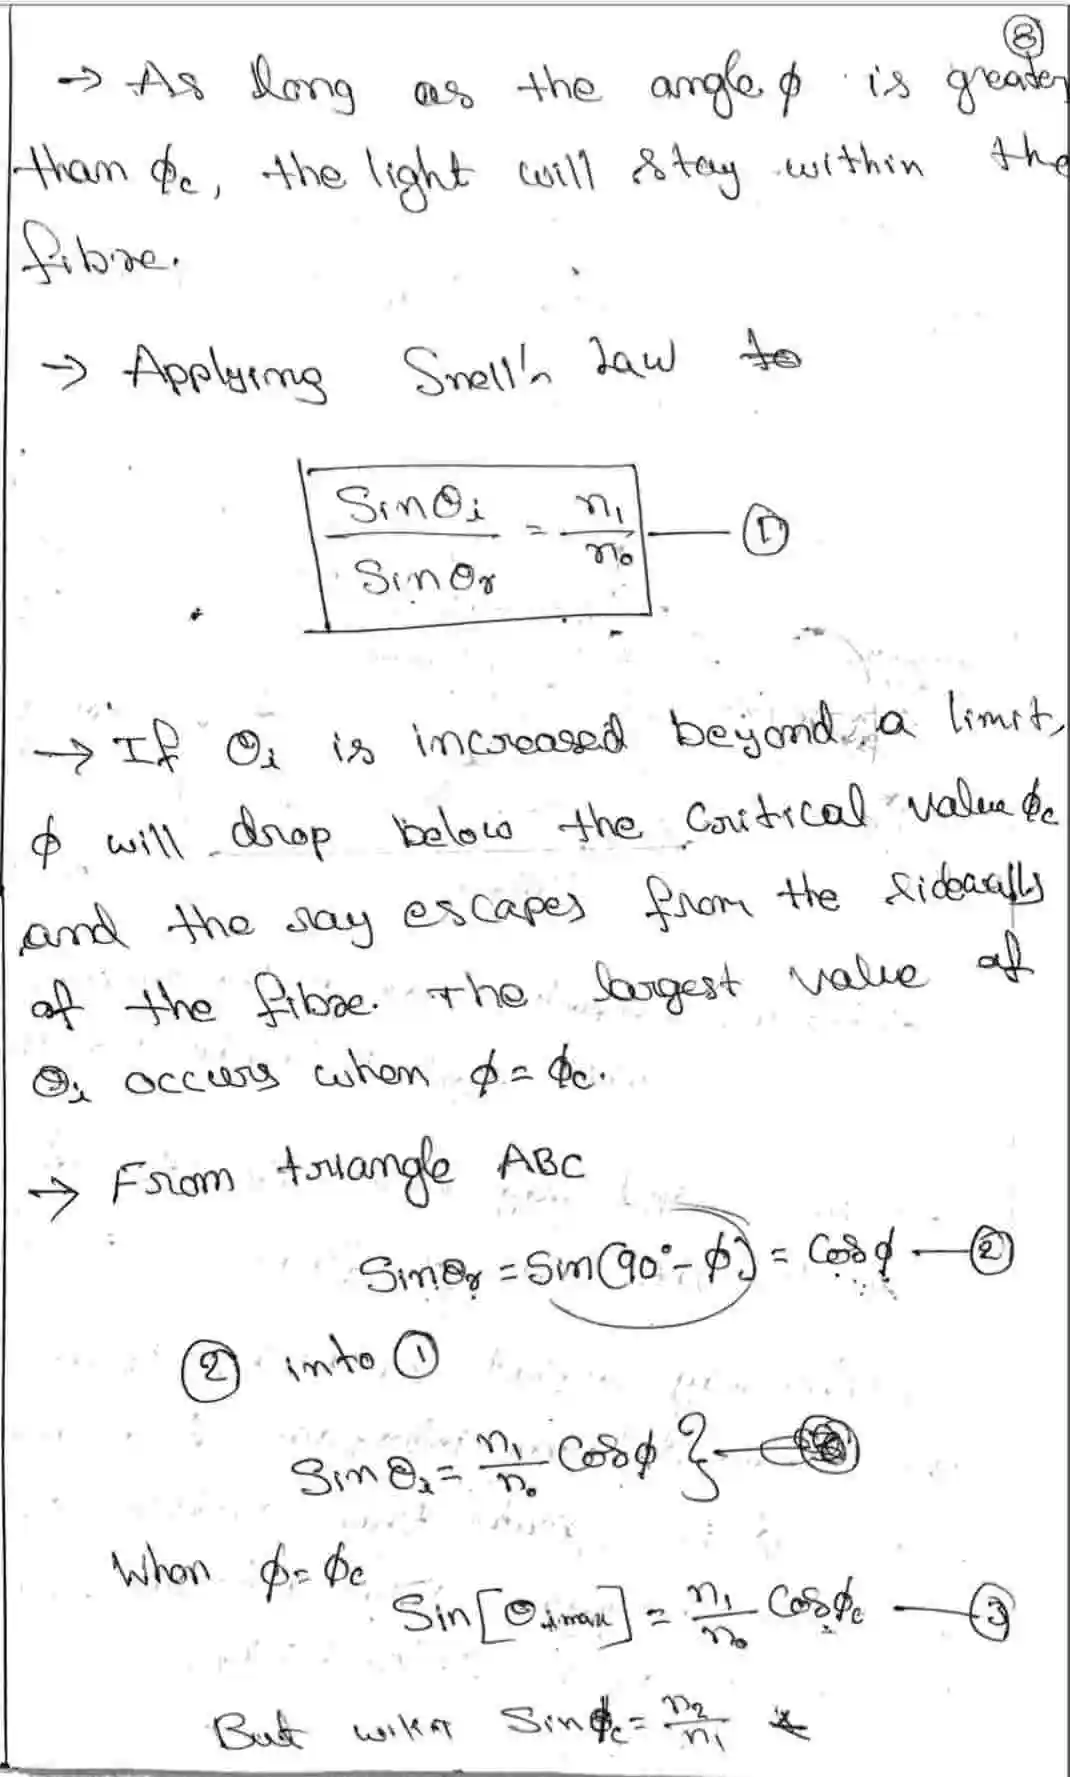 8
→ As long as the angle ϕ is greater
than ϕc, the light will stay within the
fibre.
→ Applying Snell's Law to
Sinθi / Sinθr = n1 / n0 — 1
→ If θi is increased beyond a limit,
ϕ will drop below the critical value ϕc
and the ray escapes from the sidewalls
of the fibre. The largest value of
θi occurs when ϕ = ϕc.
→ From triangle ABC
Sinθr = Sin(90° - ϕ) = Cosϕ — 2
2 into 1
Sinθi = n1/n0 Cosϕ }
When ϕ = ϕc
Sin[θimax] = n1/n0 Cosϕc — 3
But Sinϕc = n2/n1